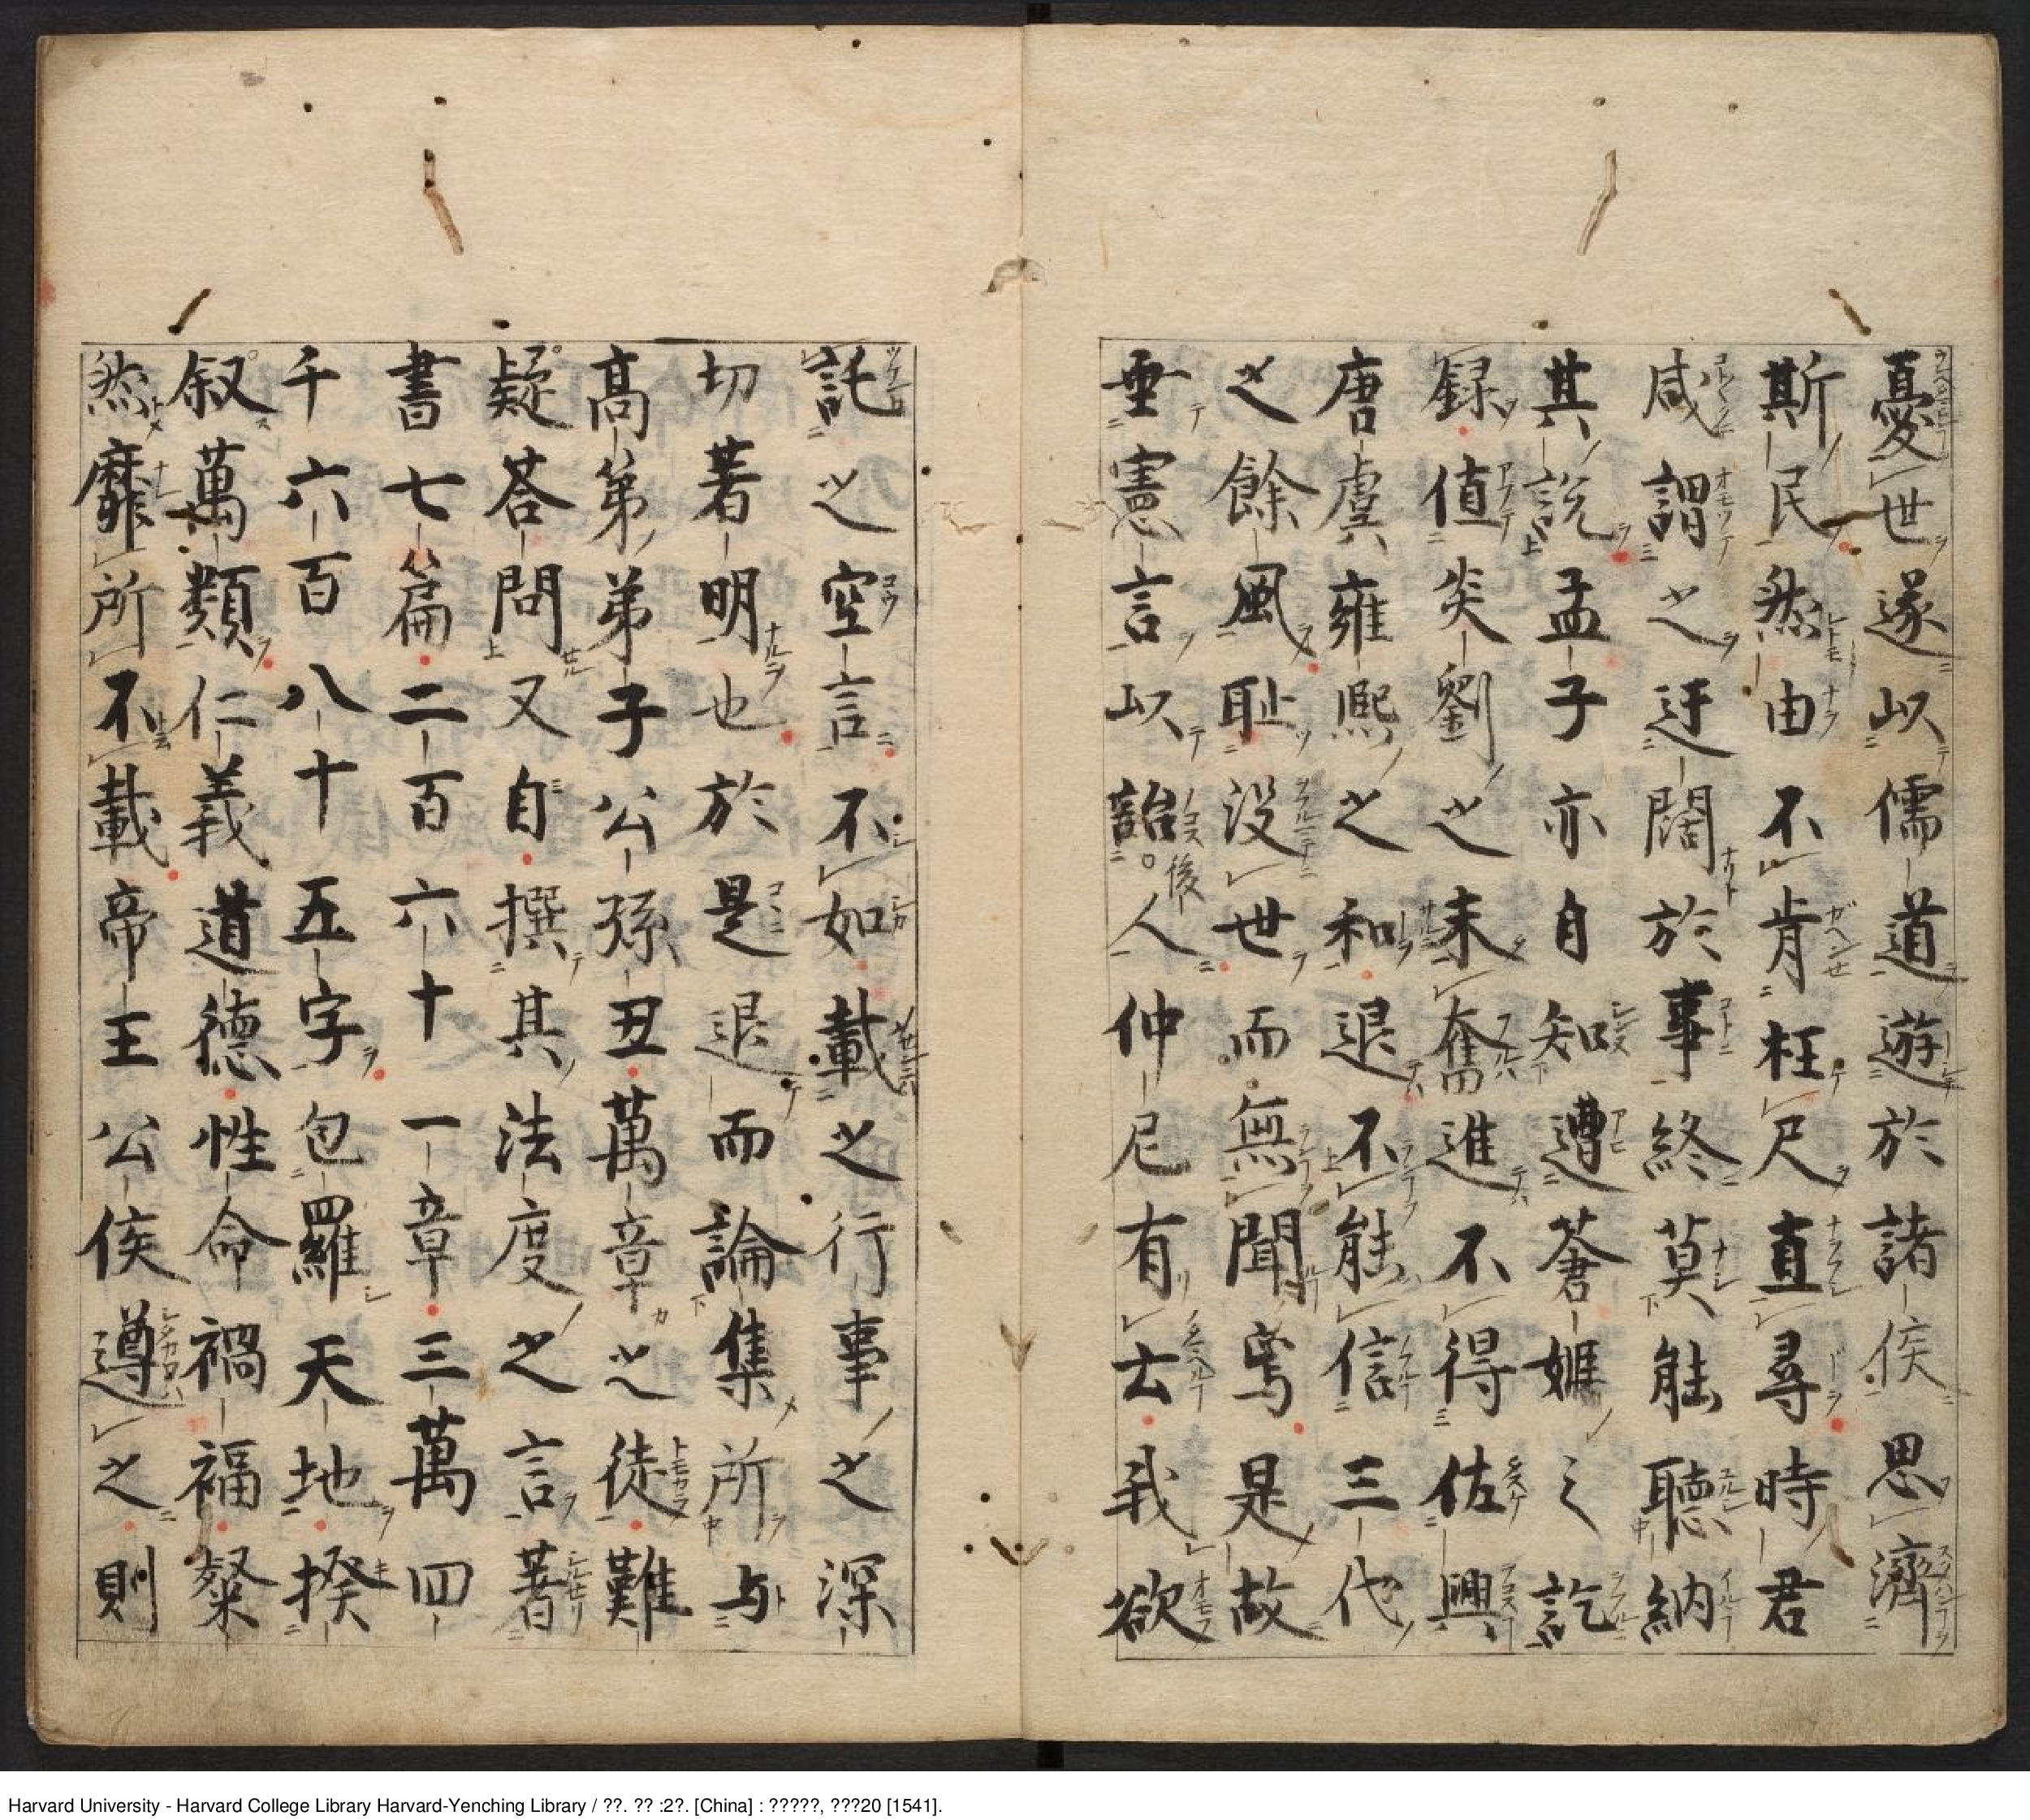 憂世遂以儒道遊於諸侯思濟
斯民然由不肯枉尺直尋時君
咸謂之迂闊於事終莫能聽納
其說孟子亦自知遭蒼姬之訖
録値炎劉之未奮進不得佐興
唐虞雍熙之和退不能信三代
之餘風耻没世而無聞焉是故
垂憲言以詒後人仲尼有云我欲
託之空言不如載之行事之深
切著明也於是退而論集所与
髙第弟子公孫丑萬章之徒難
疑荅問又自撰其法度之言著
書七篇二百六十一章三萬四
千六百八十五字包羅天地揆
叙萬類仁義道德性命禍福粲
然靡所不載帝王公侯遵之則
Harvard University - Harvard College Library Harvard-Yenching Library / ??. ?? :2?. [China] : ?????, ???20 [1541].